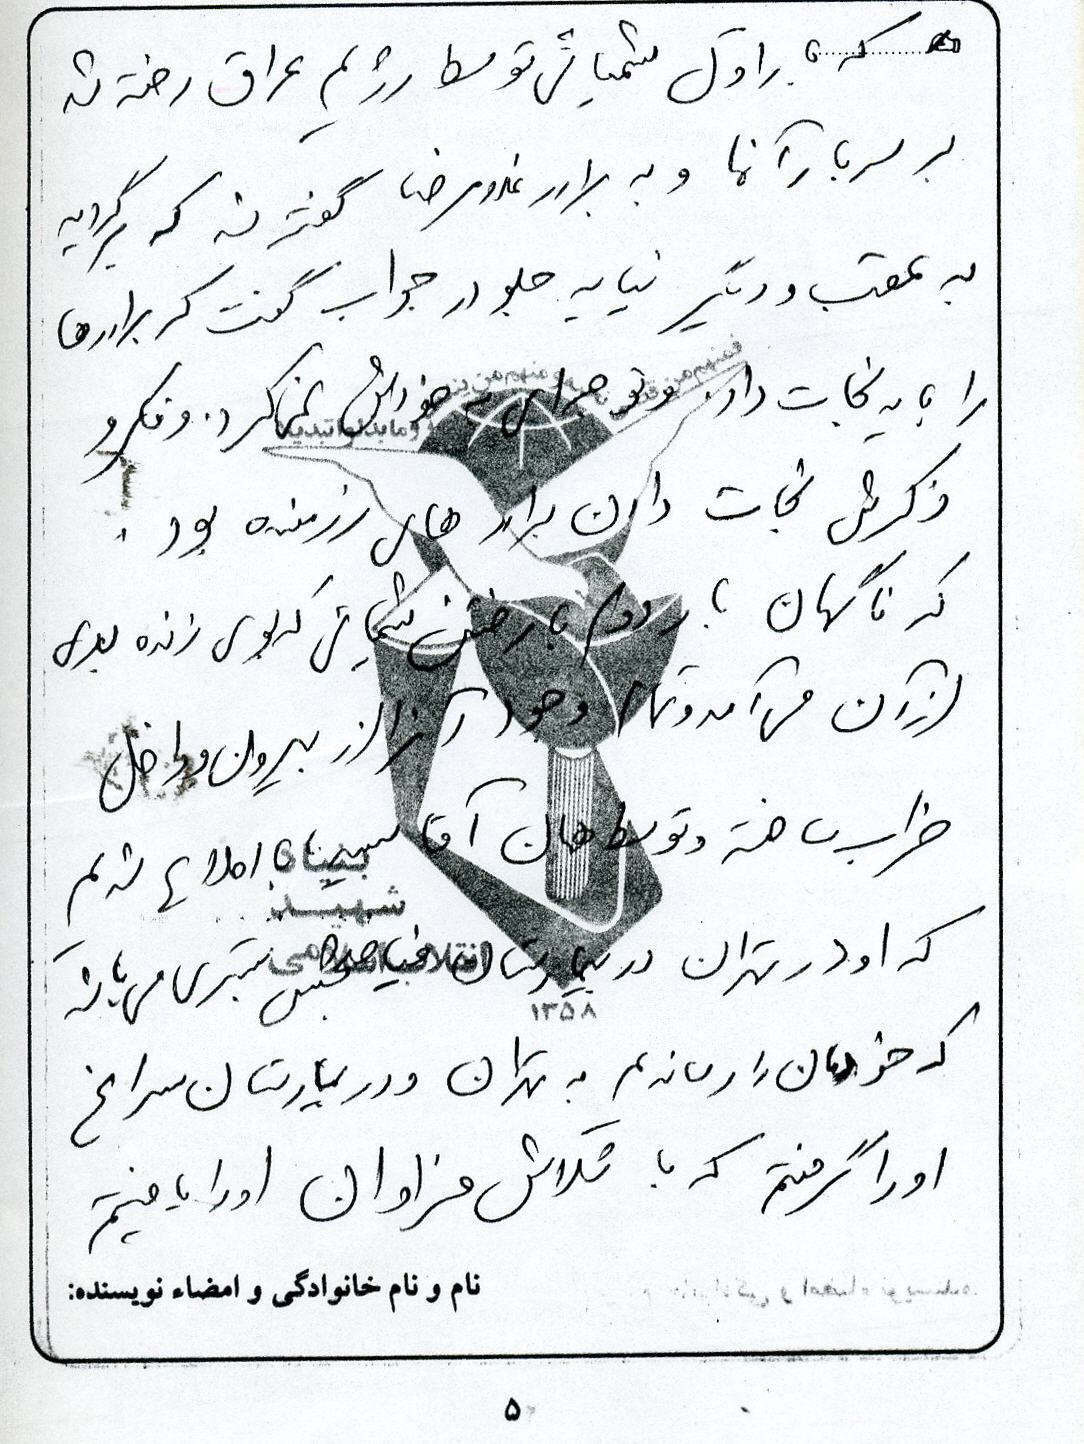 که بار اول شیمیائی توسط رژیم عراق رخته شد
بر سر بار آنها و به برادر غلامرضا گفتند که برگردید
به عقب و دیگر نیایید جلو در جواب گفت که برادرها
را باید نجات داد و توجهی به خودش نمی‌کرد و فکر و
ذکرش نجات دادن برادر های رزمنده بود.
که ناگهان بار دوم با رختن شیمیائی که بوی زنده
از آن می آمد و تمام وجود آنرا از بیرون و داخل
خراب ساخته و توسط همان آقا اطلاع شدیم
که او در تهران در بیمارستان بستری می‌باشد
که خودمان را رساندیم به تهران و در بیمارستان سراغ
او را گرفتیم که با تلاش فراوان او را یافتیم
بنیاد
شهید
انقلاب اسلامی
۱۳۵۸
نام و نام خانوادگی و امضاء نویسنده:
۵